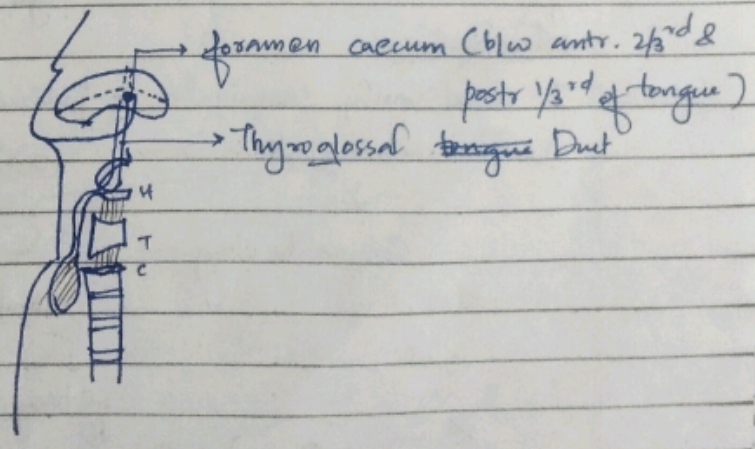 foramen caecum (b/w antr. 2/3rd &
postr 1/3rd of tongue)
Thyroglossal tongue Duct
H
T
C